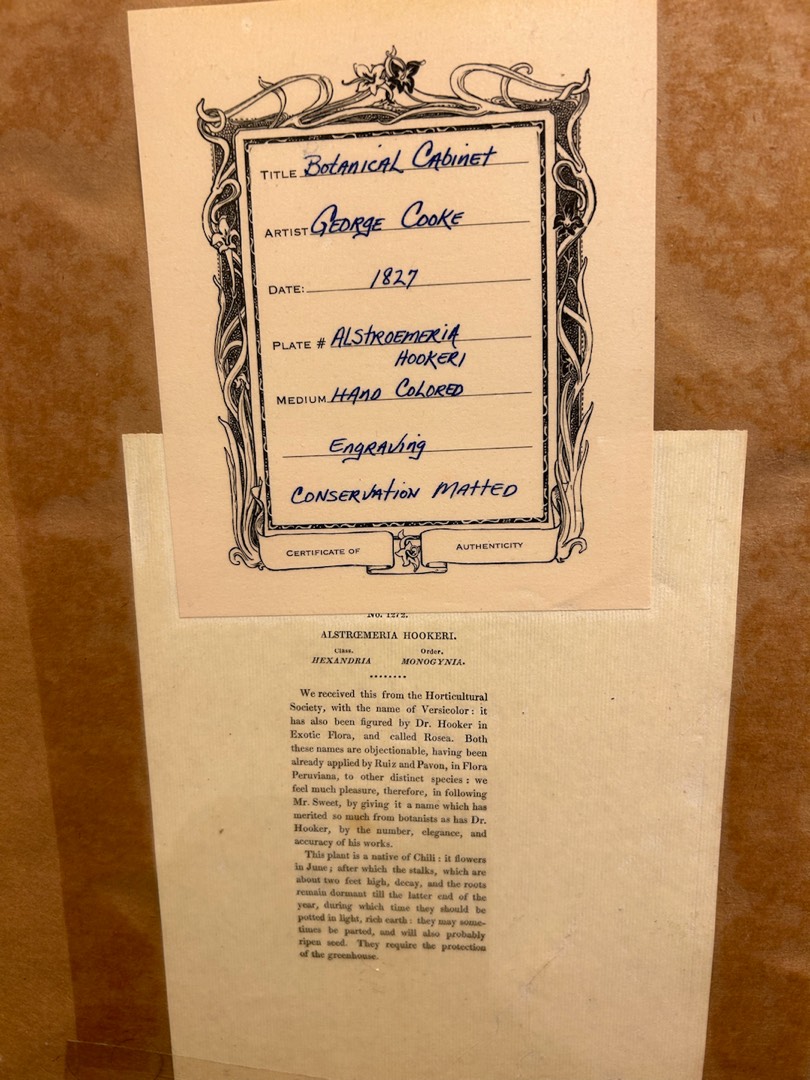 TITLE BOTANICAL CABINET
ARTIST GEORGE COOKE
DATE: 1827
PLATE # ALSTROEMERIA
HOOKERI
MEDIUM HAND COLORED
ENGRAVING
CONSERVATION MATTED
CERTIFICATE OF AUTHENTICITY
No. 1272.
ALSTRŒMERIA HOOKERI.
Class. Order.
HEXANDRIA MONOGYNIA.
We received this from the Horticultural
Society, with the name of Versicolor: it
has also been figured by Dr. Hooker in
Exotic Flora, and called Rosea. Both
these names are objectionable, having been
already applied by Ruiz and Pavon, in Flora
Peruviana, to other distinct species; we
feel much pleasure, therefore, in following
Mr. Sweet, by giving it a name which has
merited so much from botanists as has Dr.
Hooker, by the number, elegance, and
accuracy of his works.
This plant is a native of Chili: it flowers
in June; after which the stalks, which are
about two feet high, decay, and the roots
remain dormant till the latter end of the
year, during which time they should be
potted in light, rich earth: they may some-
times be parted, and will also probably
ripen seed. They require the protection
of the greenhouse.